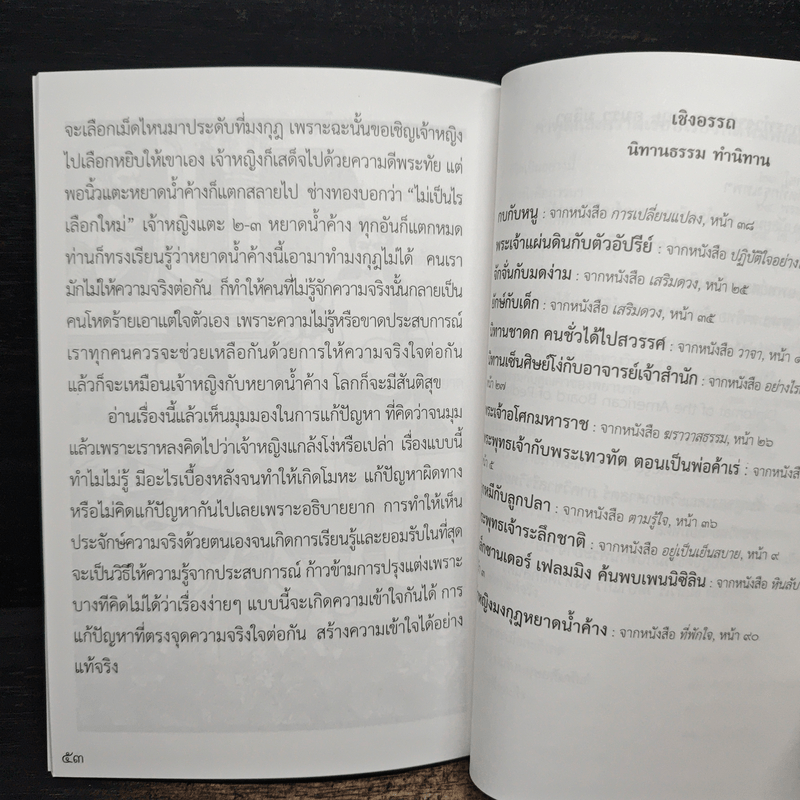 จะเลือกเม็ดไหนมาประดับที่มงกุฎ เพราะฉะนั้นขอเชิญเจ้าหญิง
ไปเลือกหยิบให้เขาเอง เจ้าหญิงก็เสด็จไปด้วยความดีพระทัย แต่
พอนิ้วแตะหยาดน้ำค้างก็แตกสลายไป ช่างทองบอกว่า “ไม่เป็นไร
เลือกใหม่” เจ้าหญิงแตะ ๒-๓ หยาดน้ำค้าง ทุกอันก็แตกหมด
ท่านก็ทรงเรียนรู้ว่าหยาดน้ำค้างนี้เอามาทำมงกุฎไม่ได้ คนเรา
มักไม่ให้ความจริงต่อกัน ก็ทำให้คนที่ไม่รู้จักความจริงนั้นกลายเป็น
คนโหดร้ายเอาแต่ใจตัวเอง เพราะความไม่รู้หรือขาดประสบการณ์
เราทุกคนควรจะช่วยเหลือกันด้วยการให้ความจริงใจต่อกัน
แล้วก็จะเหมือนเจ้าหญิงกับหยาดน้ำค้าง โลกก็จะมีสันติสุข
อ่านเรื่องนี้แล้วเห็นมุมมองในการแก้ปัญหา ที่คิดว่าจนมุม
แล้วเพราะเราหลงคิดไปว่าเจ้าหญิงแกล้งโง่หรือเปล่า เรื่องแบบนี้
ทำไมไม่รู้ มีอะไรเบื้องหลังจนทำให้เกิดโมหะ แก้ปัญหาผิดทาง
หรือไม่คิดแก้ปัญหากันไปเลยเพราะอธิบายยาก การทำให้เห็น
ประจักษ์ความจริงด้วยตนเองจนเกิดการเรียนรู้และยอมรับในที่สุด
จะเป็นวิธีให้ความรู้จากประสบการณ์ ก้าวข้ามการปรุงแต่งเพราะ
บางทีคิดไม่ได้ว่าเรื่องง่ายๆ แบบนี้จะเกิดความเข้าใจกันได้ การ
แก้ปัญหาที่ตรงจุดความจริงใจต่อกัน สร้างความเข้าใจได้อย่าง
แท้จริง
๕๓
เชิงอรรถ
นิทานธรรม ทำนิทาน
กบกับหนู : จากหนังสือ การเปลี่ยนแปลง, หน้า ๓๘
พระเจ้าแผ่นดินกับตัวอัปรีย์ : จากหนังสือ ปฏิบัติใจอย่าง
จักจั่นกับมดง่าม : จากหนังสือ เสริมดวง, หน้า ๒๕
ยักษ์กับเด็ก : จากหนังสือ เสริมดวง, หน้า ๓๕
นิทานชาดก คนชั่วได้ไปสวรรศ : จากหนังสือ วาจา, หน้า
นิทานเซ็นศิษย์โง่กับอาจารย์เจ้าสำนัก : จากหนังสือ อย่างไร
หน้า ๒๗
พระเจ้าอโศกมหาราช : จากหนังสือ ฆราวาสธรรม, หน้า ๒๖
พระพุทธเจ้ากับพระเทวทัต ตอนเป็นพ่อค้าเร่ : จากหนังสือ
๕
หมีกับลูกปลา : จากหนังสือ ตามรู้ใจ, หน้า ๓๖
พระพุทธเจ้าระลึกชาติ : จากหนังสือ อยู่เป็นเย็นสบาย, หน้า ๙
ล็กซานเดอร์ เฟลมมิง ค้นพบเพนนิซิลิน : จากหนังสือ หินลับ
๓
หญิงมงกุฎหยาดน้ำค้าง : จากหนังสือ ที่พักใจ, หน้า ๙๐